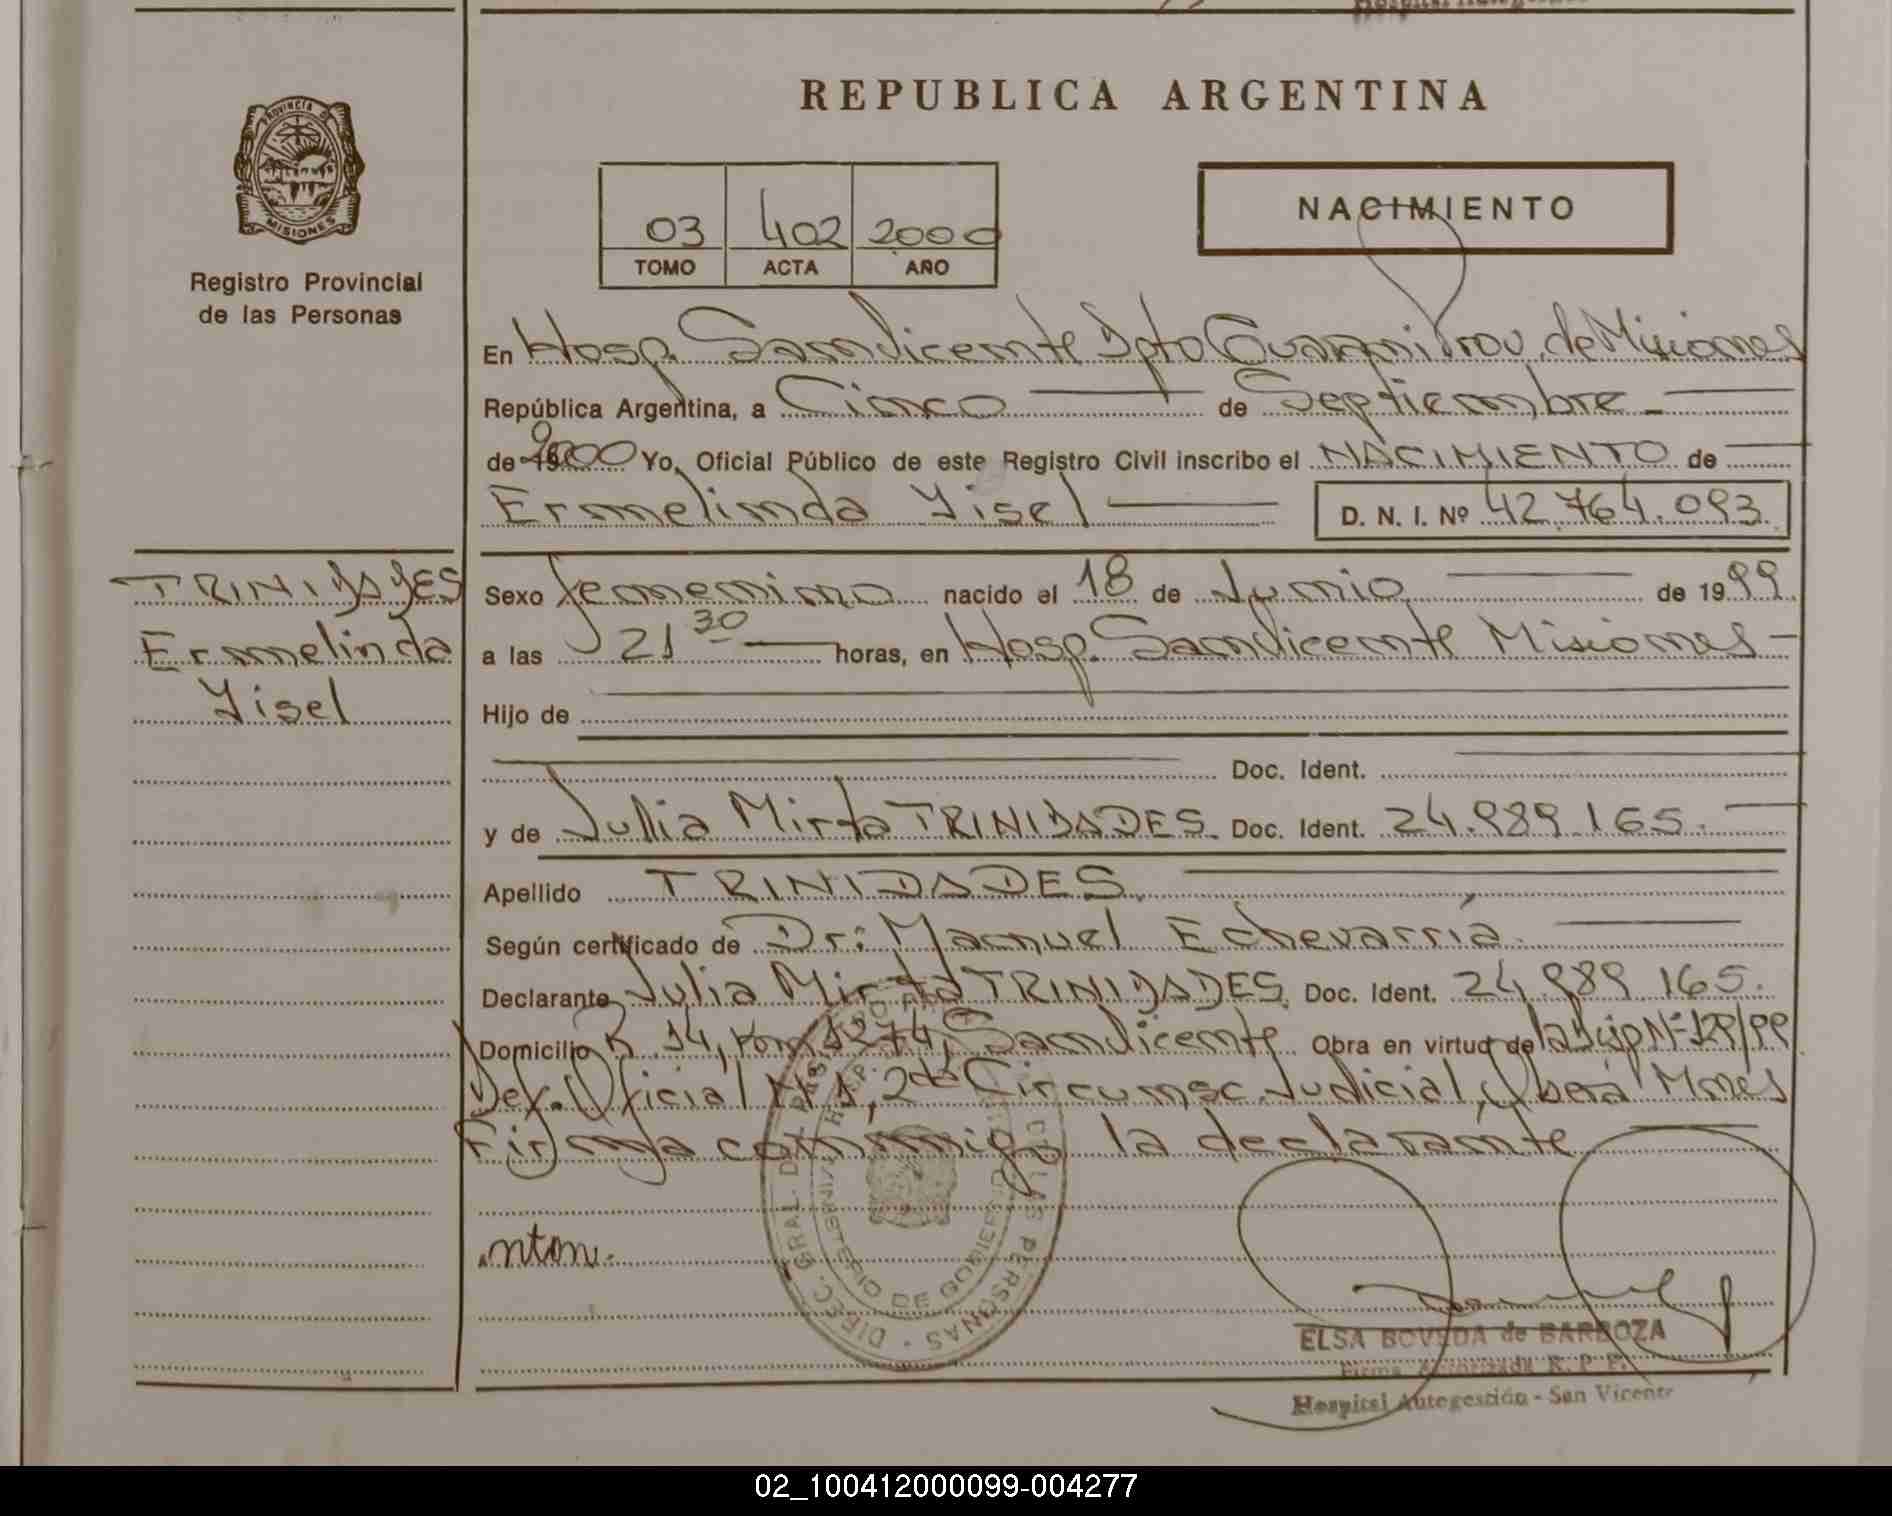 REPUBLICA ARGENTINA
PROVINCIA DE
MISIONES
Registro Provincial
de las Personas
03 402 2000
TOMO ACTA AÑO
NACIMIENTO
En Hosp. San Vicente Dpto Guaraní Prov. de Misiones
República Argentina, a Cinco de Septiembre
de 2000 Yo, Oficial Público de este Registro Civil inscribo el NACIMIENTO de
Ermelinda Yisel D. N. I. Nº 42.764.093
TRINIDADES
Ermelinda
Yisel
Sexo femenino nacido el 18 de Junio de 1999
a las 21 30 horas, en Hosp. San Vicente Misiones
Hijo de
Doc. Ident.
y de Julia Mirta TRINIDADES. Doc. Ident. 24.989.165.
Apellido TRINIDADES.
Según certificado de Dr: Manuel Echevarría.
Declarante Julia Mirta TRINIDADES. Doc. Ident. 24.989.165.
Domicilio R. 14, Km 1274, San Vicente Obra en virtud de la
Def. Oficial Nº 1, 2da Circunsc. Judicial, Oberá Mnes
Firma conmigo la declarante
DIREC. GRAL. DEL PERSONAS
MINISTERIO DE GOBIERNO
ELSA BOVEDA de BARBOZA
Firma Autorizada R. P. P.
Hospital Autogestión - San Vicente
02_100412000099-004277